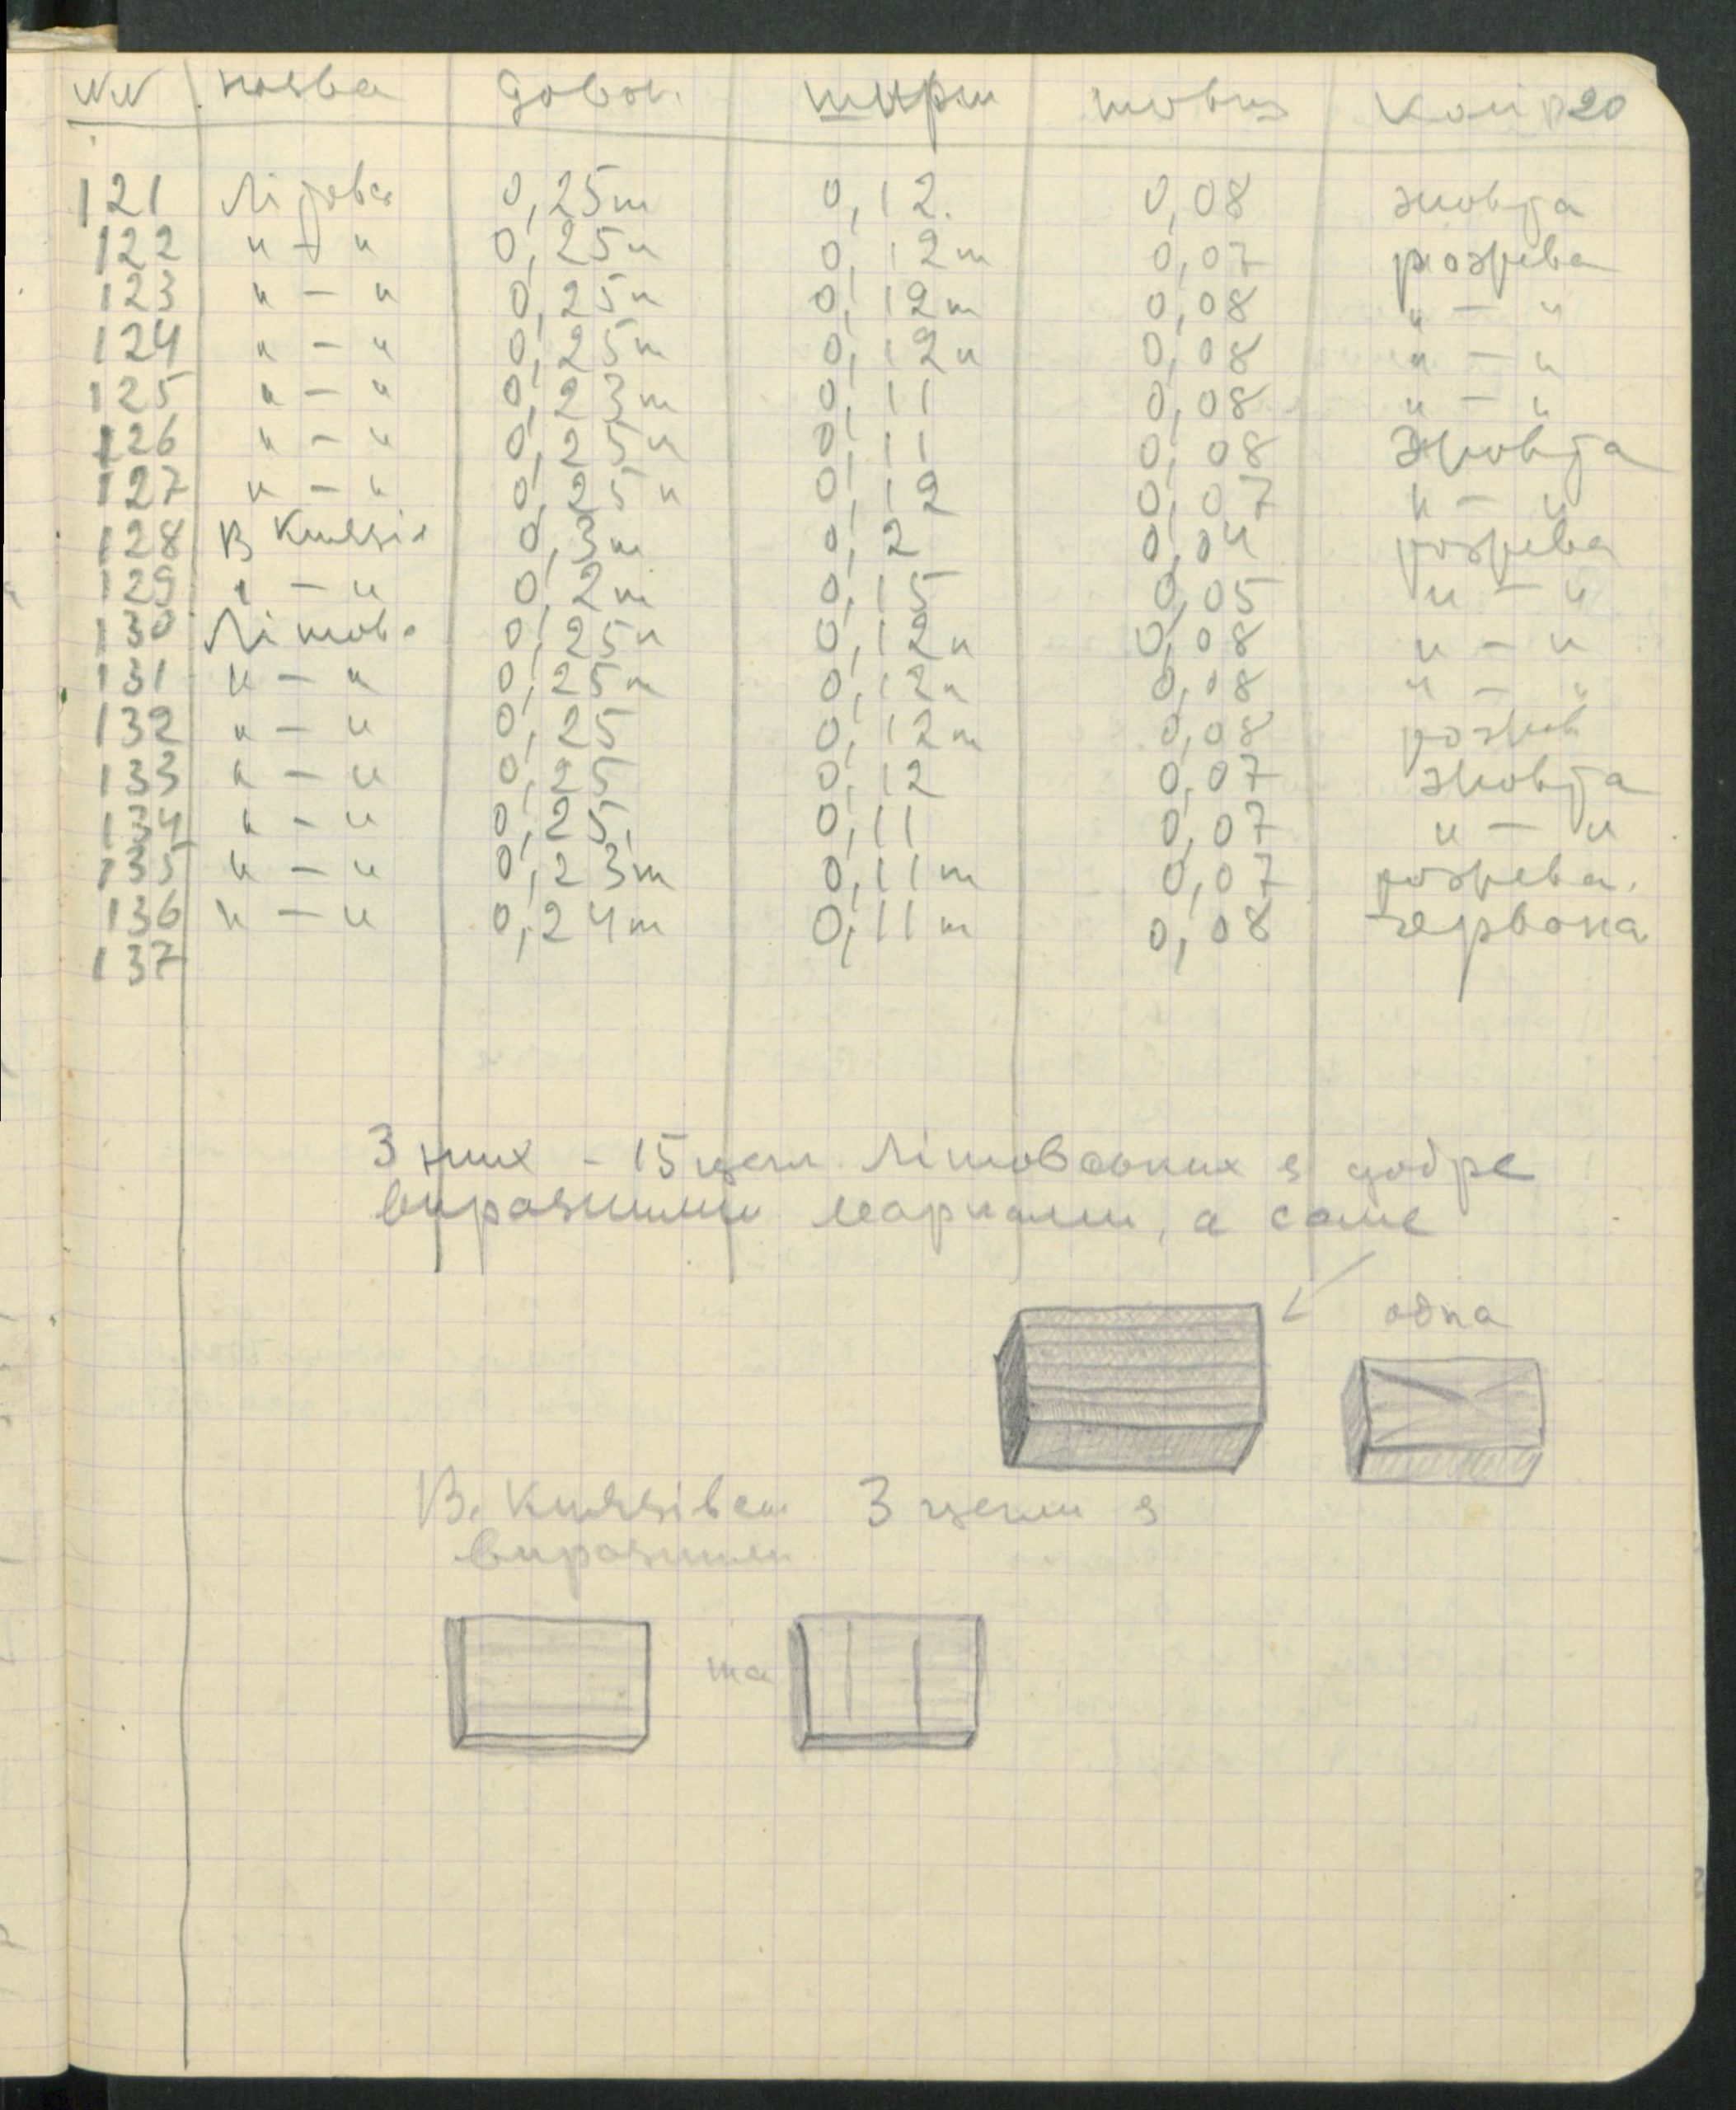 NN назва довж. шир. товщ колір 20
121 Літовс 0,25m 0,12. 0,08 жовта
122 " — " 0,25m 0,12m 0,07 рожева
123 " — " 0,25m 0,12m 0,08 " — "
124 " — " 0,25m 0,12m 0,08 " — "
125 " — " 0,23m 0,11 0,08 " — "
126 " — " 0,25m 0,11 0,08 жовта
127 " — " 0,25m 0,12 0,07 " — "
128 В Князів 0,3m 0,2 0,04 рожева
129 " — " 0,2m 0,15 0,05 " — "
130 Літов. 0,25m 0,12m 0,08 " — "
131 " — " 0,25m 0,12m 0,08 " — "
132 " — " 0,25 0,12m 0,08 рожев
133 " — " 0,25 0,12 0,07 жовта
134 " — " 0,25, 0,11 0,07 " — "
135 " — " 0,23m 0,11m 0,07 рожева.
136 " — " 0,24m 0,11m 0,08 червона
137
З них - 15 цегл Літовських з добре
виразними марками, а саме
одна
В. Князівськ 3 цегли з
виразними
та